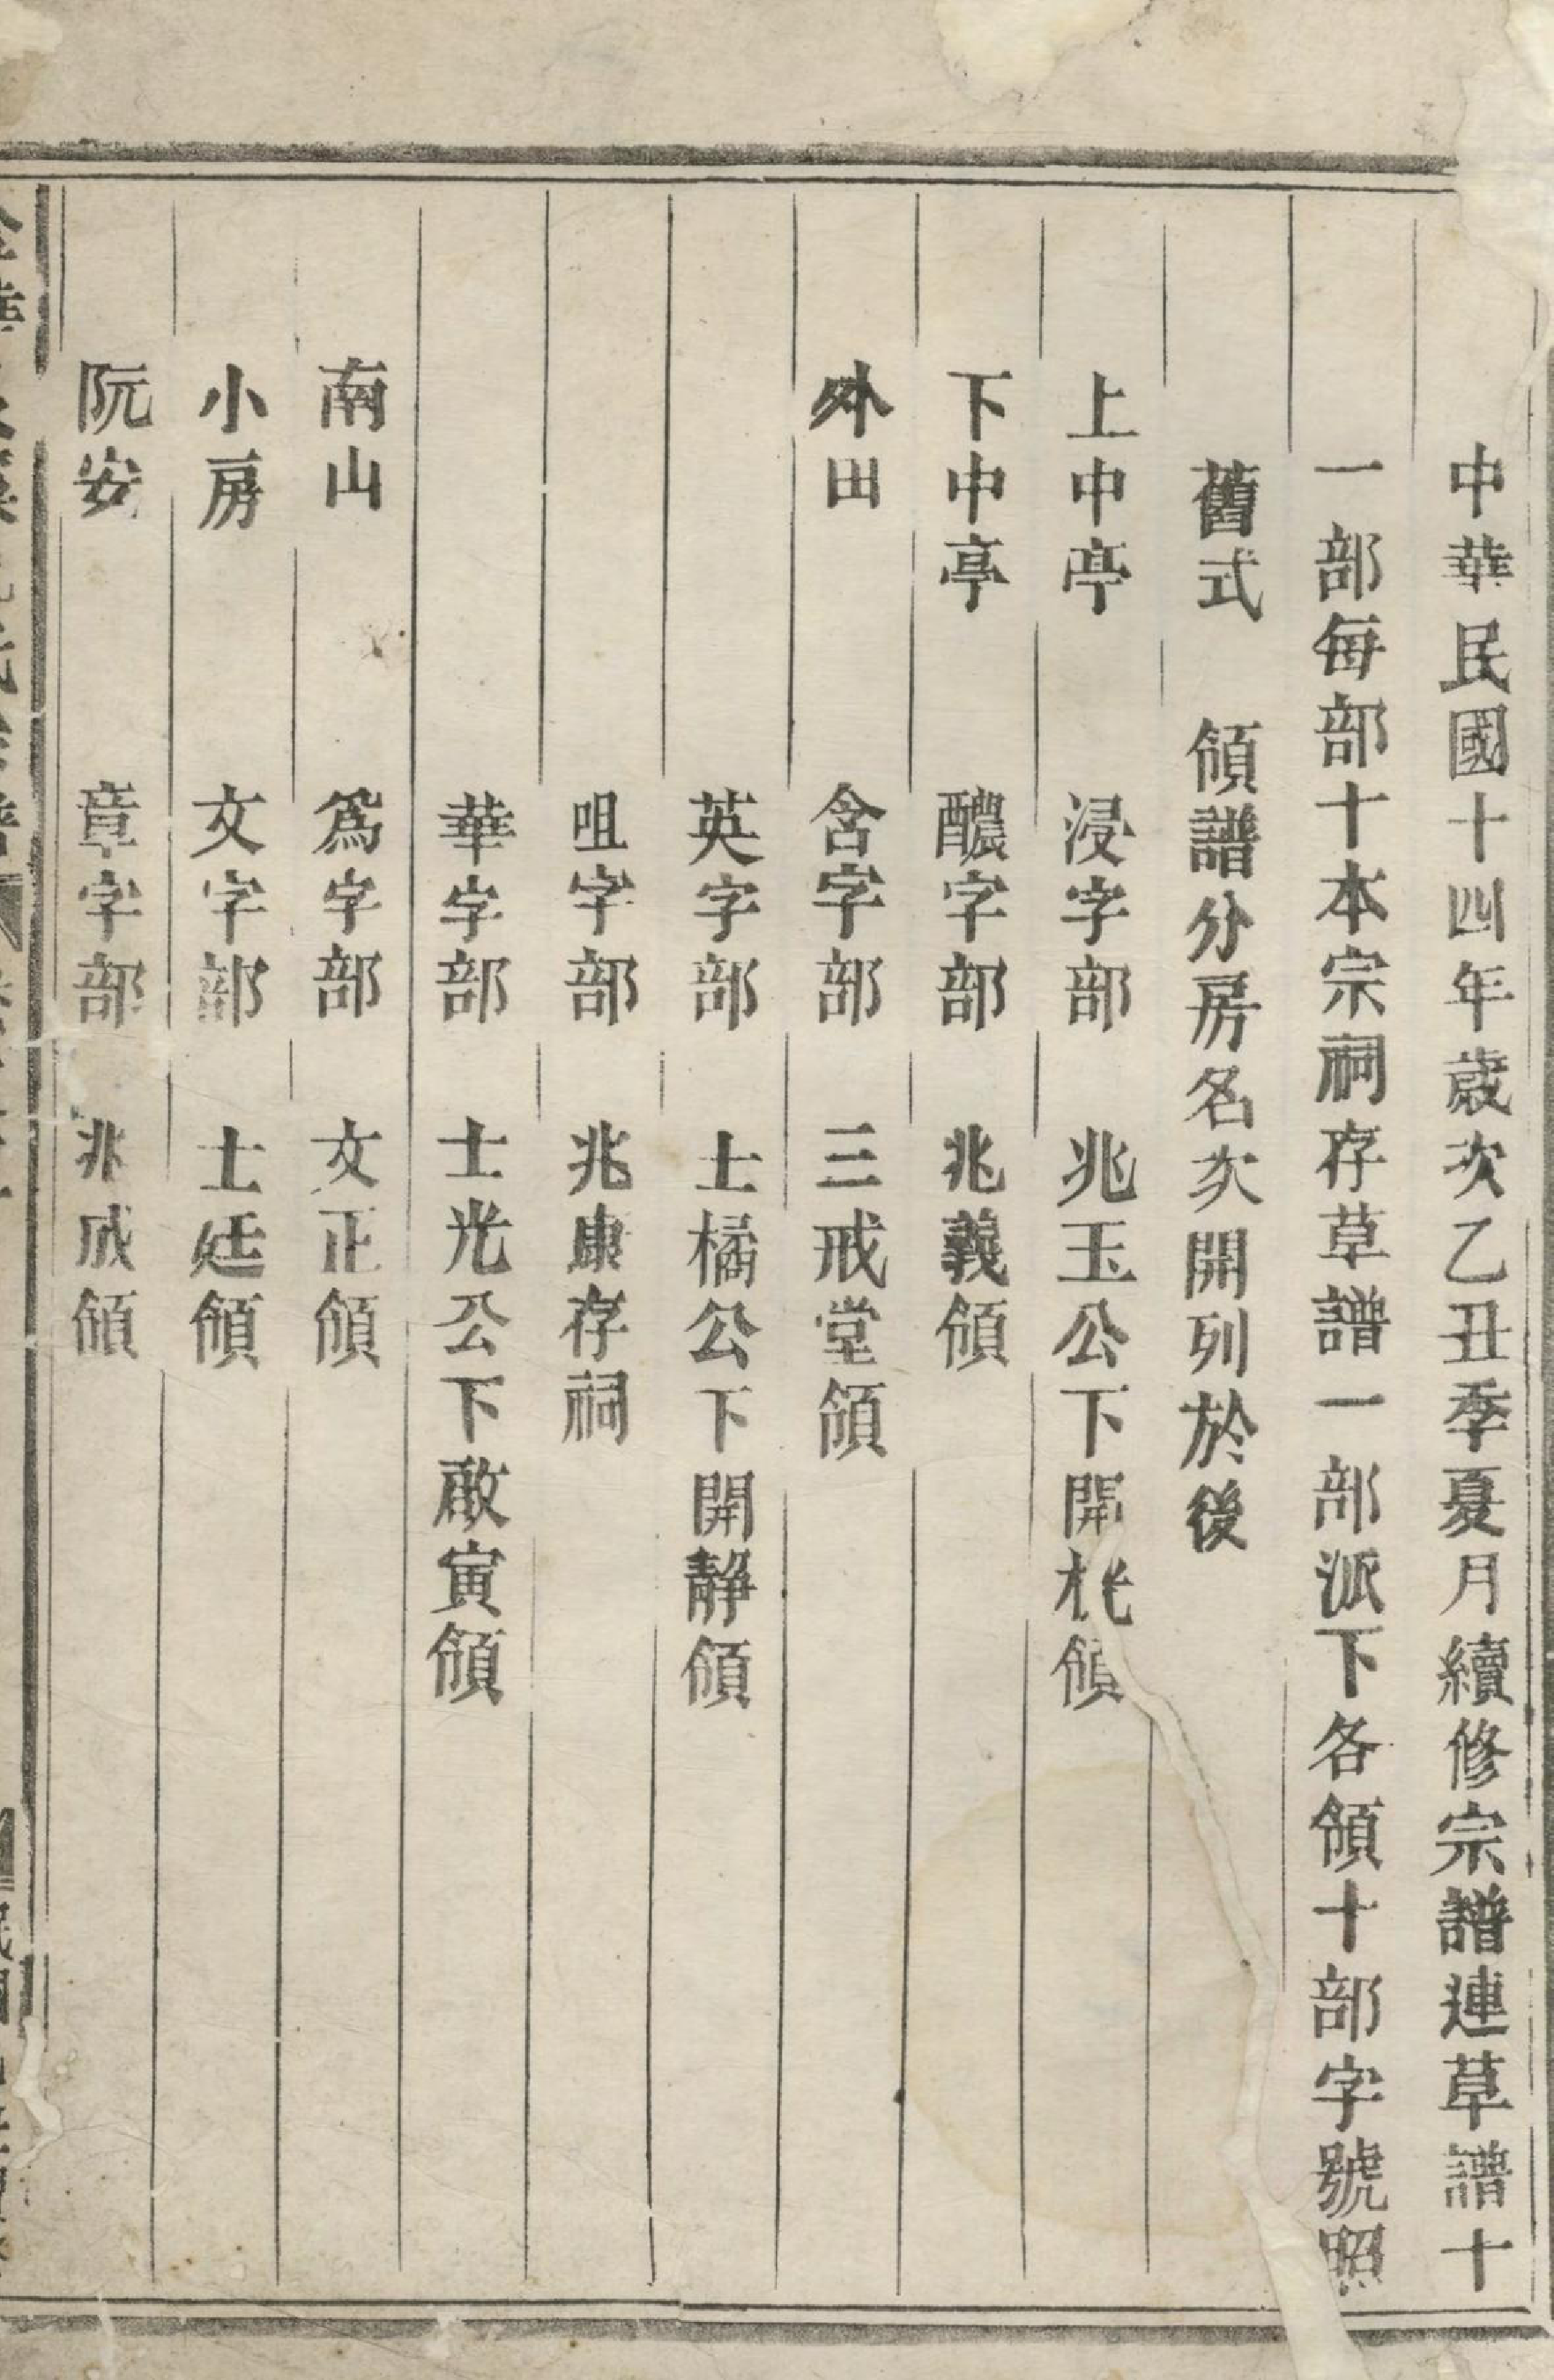 中華民國十四年歲次乙丑季夏月續修宗譜連草譜十
一部每部十本宗祠存草譜一部派下各領十部字號照
舊式 領譜分房名次開列於後
上中亭 浸字部 兆玉公下開桄領
下中亭 醲字部 兆義領
外田 含字部 三戒堂領
英字部 士橘公下開靜領
咀字部 兆康存祠
華字部 士光公下敢寅領
南山 為字部 文正領
小房 文字部 士廷領
阮安 章字部 兆成領